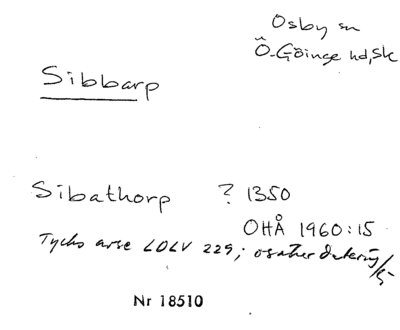 Osby sn
Ö-Göinge hd, Sk
Sibbarp
Sibathorp ? 1350
OHÅ 1960:15
LDLV 229; osäker datering
Nr 18510